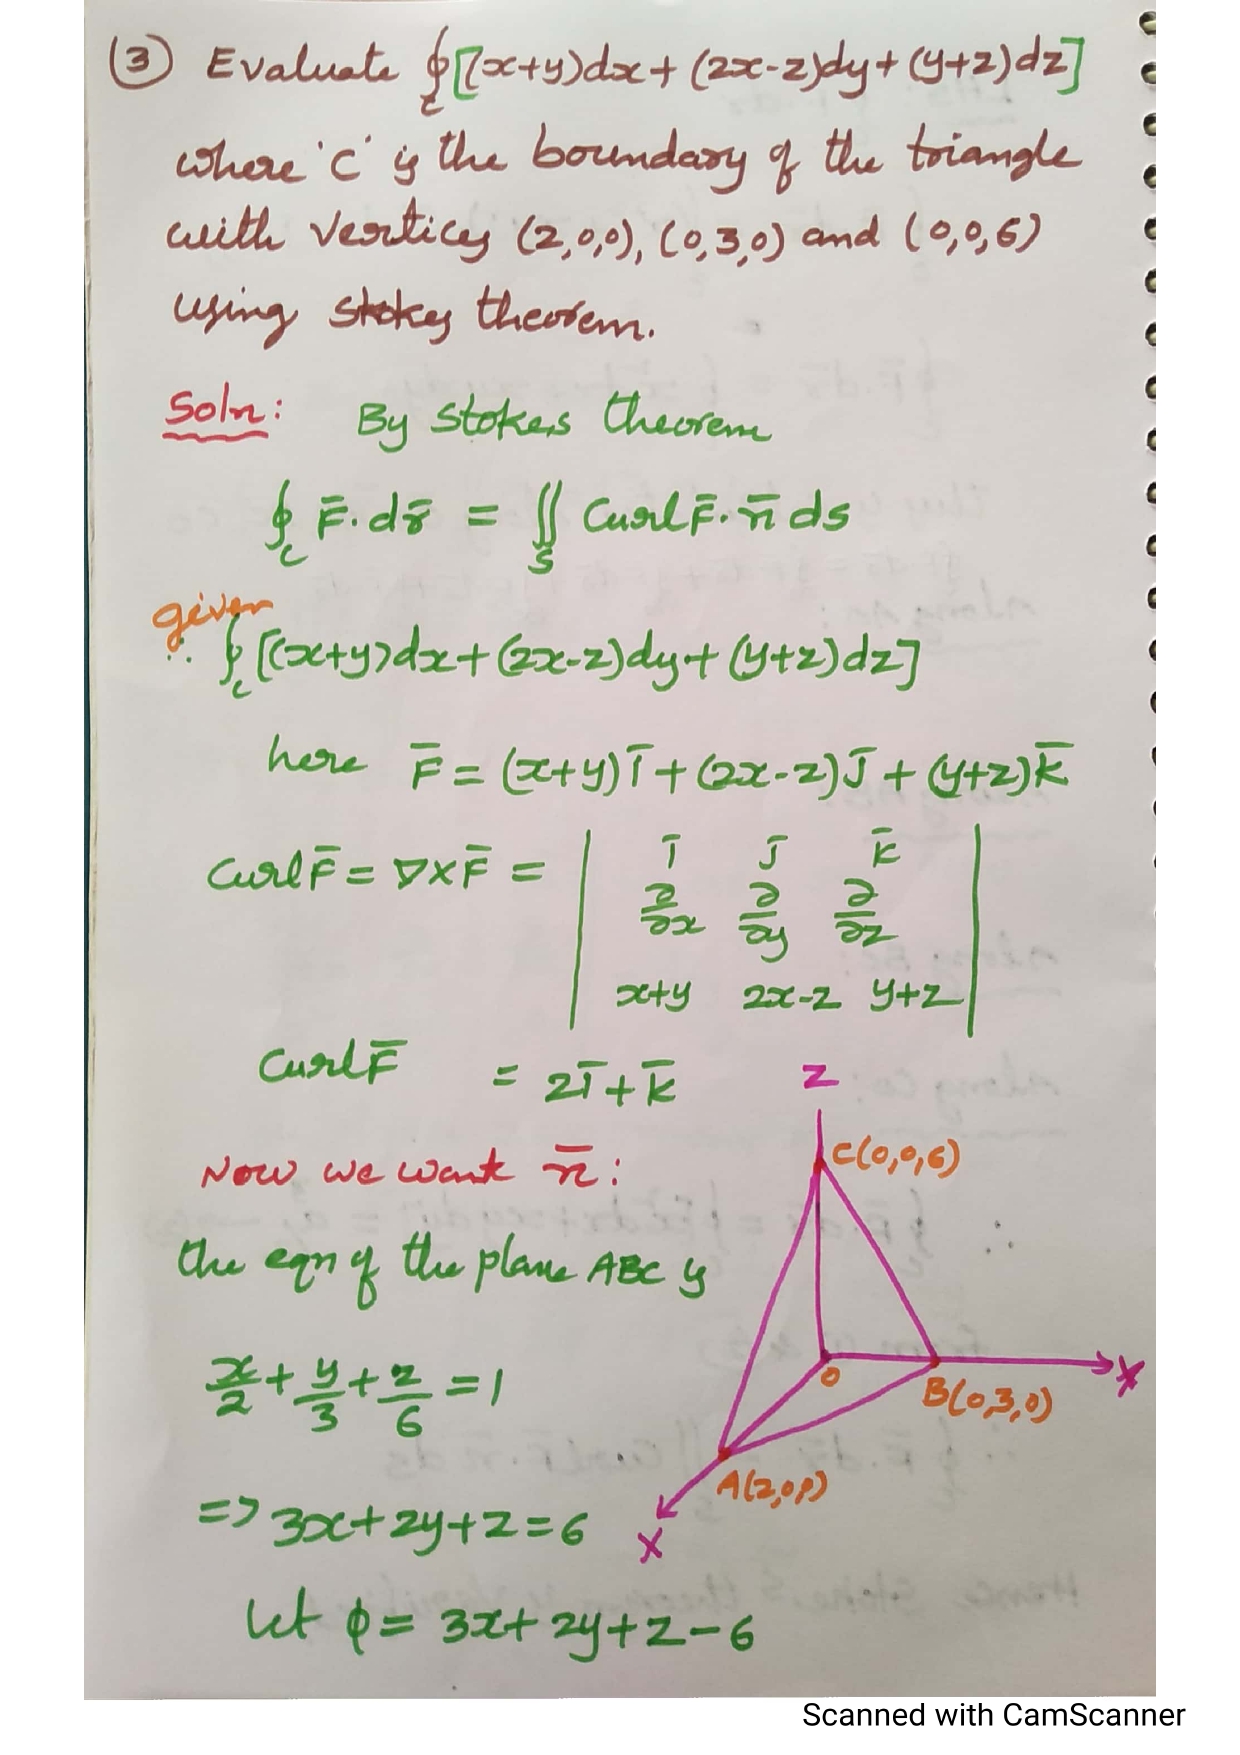 (3) Evaluate ∮c[(x+y)dx+(2x-z)dy+(y+z)dz]
where 'C' is the boundary of the triangle
with vertices (2,0,0), (0,3,0) and (0,0,6)
using stokes theorem.
Soln: By Stokes theorem
∮c F̄·dr̄ = ∬S Curl F̄·n̄ ds
given
∴ ∮c [(x+y)dx+(2x-z)dy+(y+z)dz]
here F̄ = (x+y)ī+(2x-z)j̄+(y+z)k̄
Curl F̄ = ∇×F̄ = | ī j̄ k̄
∂/∂x ∂/∂y ∂/∂z
x+y 2x-z y+z |
Curl F̄ = 2ī+k̄
Z
C(0,0,6)
Now we want n̄:
the eqn of the plane ABC is
x/2+y/3+z/6=1
O
X
B(0,3,0)
A(2,0,0)
=> 3x+2y+z=6
X
Let φ= 3x+2y+z-6
Scanned with CamScanner